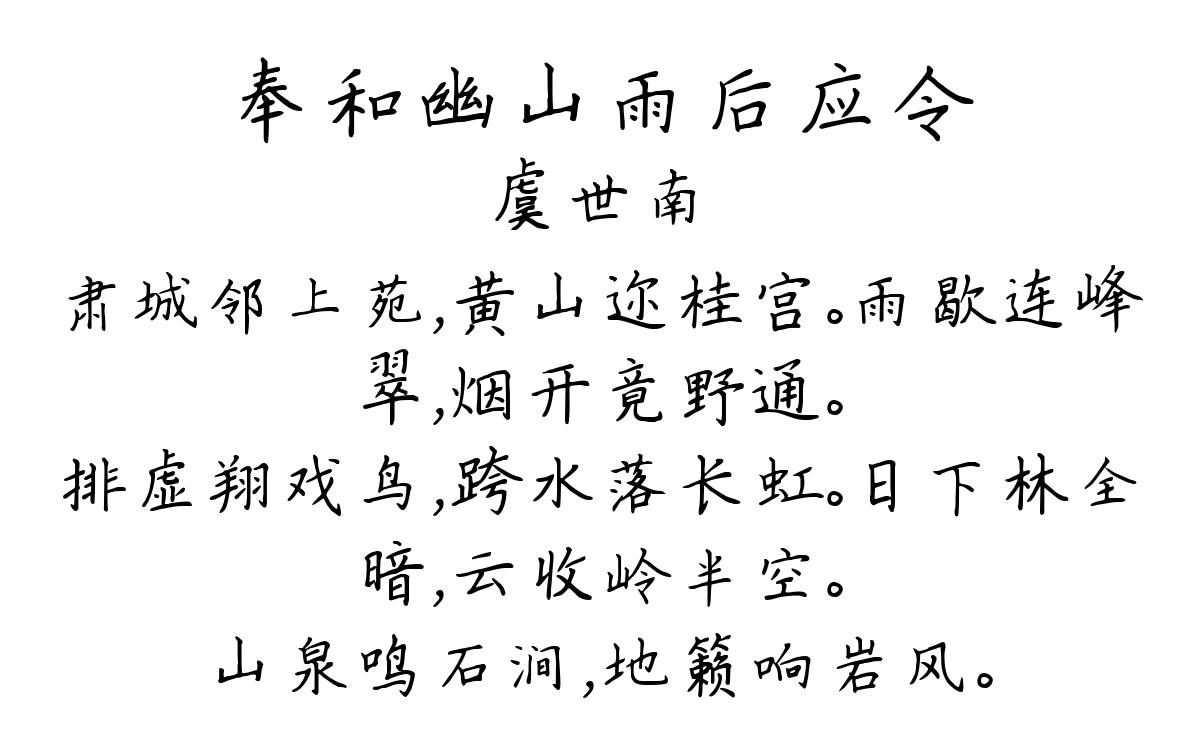 奉和幽山雨后应令
虞世南
肃城邻上苑,黄山迩桂宫。雨歇连峰
翠,烟开竟野通。
排虚翔戏鸟,跨水落长虹。日下林全
暗,云收岭半空。
山泉鸣石涧,地籁响岩风。